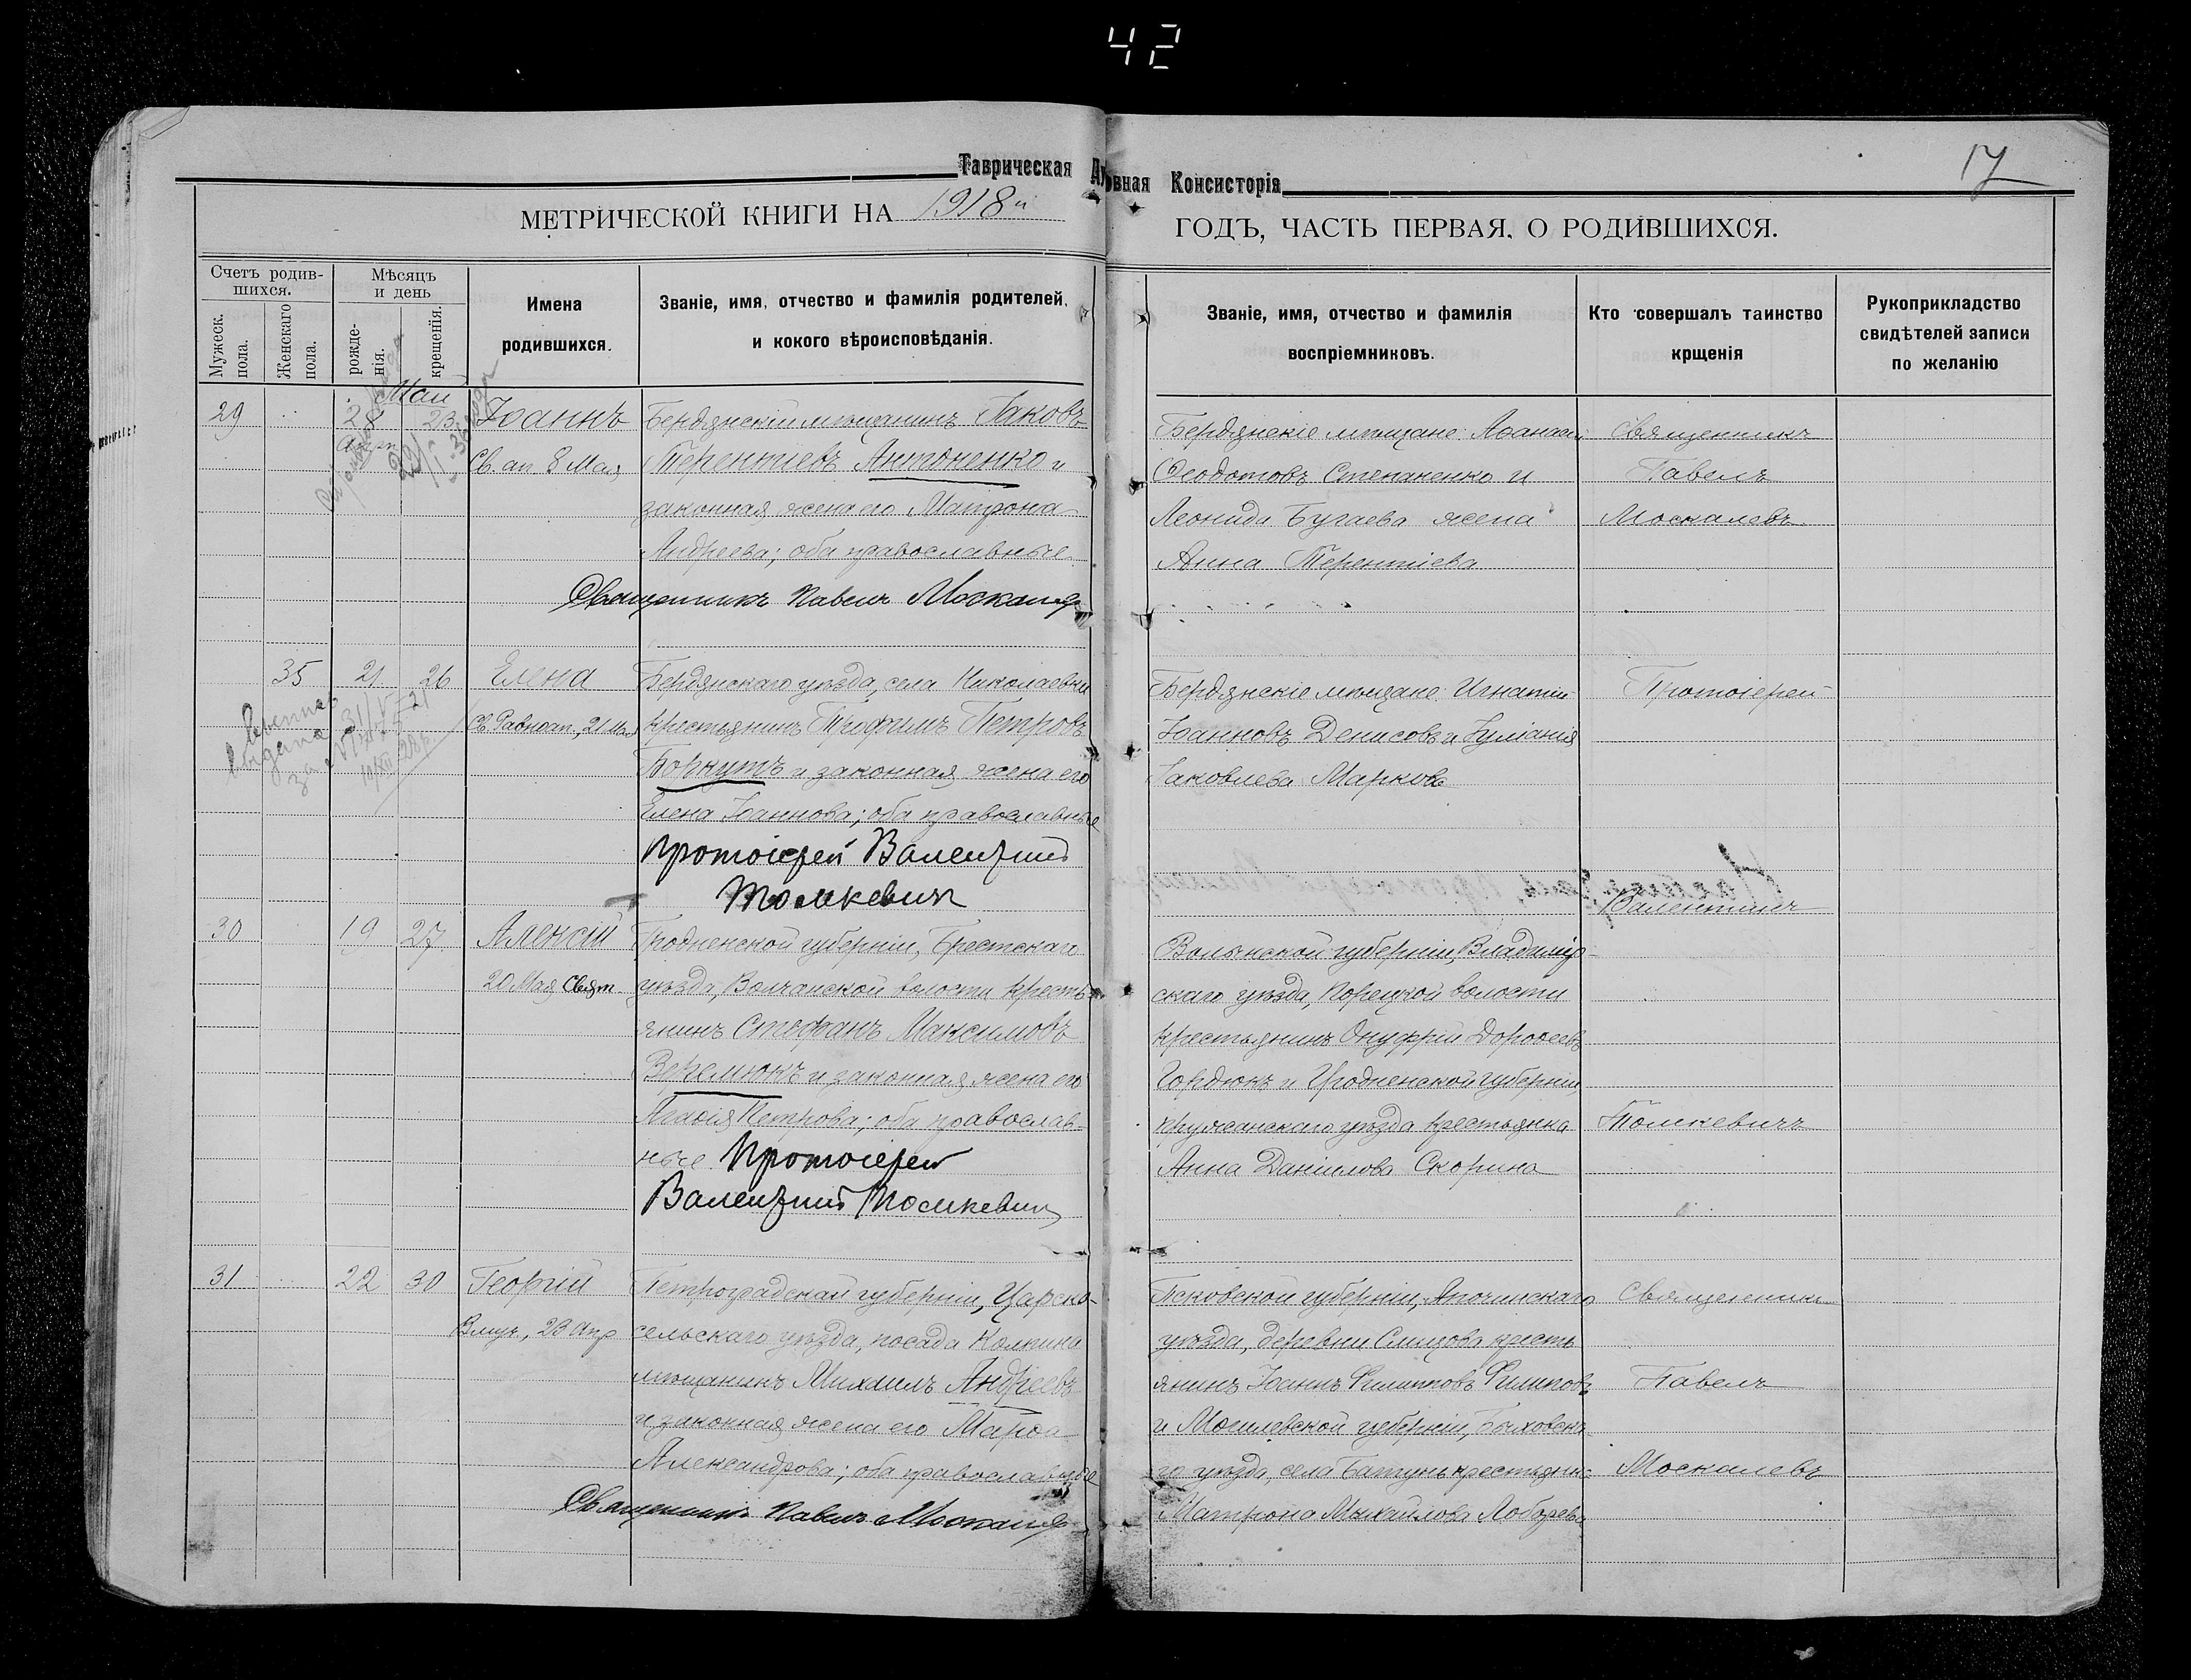 42
Таврическая Духовная Консисторія
17
МЕТРИЧЕСКОЙ КНИГИ НА 1918й ГОДЪ, ЧАСТЬ ПЕРВАЯ, О РОДИВШИХСЯ.
Счетъ родившихся.
Мужеск. пола.
Женскаго пола.
Мѣсяцъ и день
рожденія.
крещенія.
Имена родившихся.
Званіе, имя, отчество и фамилія родителей, и кокого вѣроисповѣданія.
Званіе, имя, отчество и фамилія воспріемниковъ.
Кто совершалъ таинство крщенія
Рукоприкладство свидѣтелей записи по желанію
Май
29 28 23 Іоаннъ
Апр
Св. ап. 8 Мая
Бердянскій мѣщанинъ Іаковъ
Терентіевъ Антоненко и
законная жена его Матрона
Андреева; оба православные
Священникъ Павелъ Москалевъ
Бердянскіе мѣщане: Аѳанасій
Ѳеодотовъ Степаненко и
Леонида Бугаева жена
Анна Терентіева
Священникъ
Павелъ
Москалевъ
35 21 26 Елена
Св. Равноап., 21 Мая
Бердянскаго уѣзда, села Николаевки
крестьянинъ Трофимъ Петровъ
Боркутъ и законная жена его
Елена Іоаннова; оба православные
Протоіерей Валентинъ
Томкевичъ
Бердянскіе мѣщане: Игнатій
Іоанновъ Денисовъ и Іуліанія
Іаковлева Маркова
Протоіерей
Валентинъ
30 19 27 Алексій
20 Мая Свят.
Гродненской губерніи, Брестскаго
уѣзда, Волчанской волости кресть-
янинъ Стефанъ Максимовъ
Веремюкъ и законная жена его
Агаѳія Петрова; оба православ-
ные Протоіерей
Валентинъ Томкевичъ
Волынской губерніи, Владимір-
скаго уѣзда, Порецкой волости
крестьянинъ Онуфрій Дороѳеевъ
Гордюкъ и Гродненской губерніи,
Пружанскаго уѣзда крестьянка
Анна Даніилова Скорина
Томкевичъ
31 22 30 Георгій
Влмуч., 23 Апр
Петроградской губерніи, Царско-
сельскаго уѣзда, посада Колпина
мѣщанинъ Михаилъ Андреевъ
и законная жена его Марѳа
Александрова; оба православные
Священникъ Павелъ Москалевъ
Псковской губерніи, Опочинскаго
уѣзда, деревни кресть
янинъ Іоаннъ Филипповъ Филиповъ
и Могилевской губерніи, Быховска-
го уѣзда, села Батунь крестьянка
Матрона Михайлова
Священникъ
Павелъ
Москалевъ